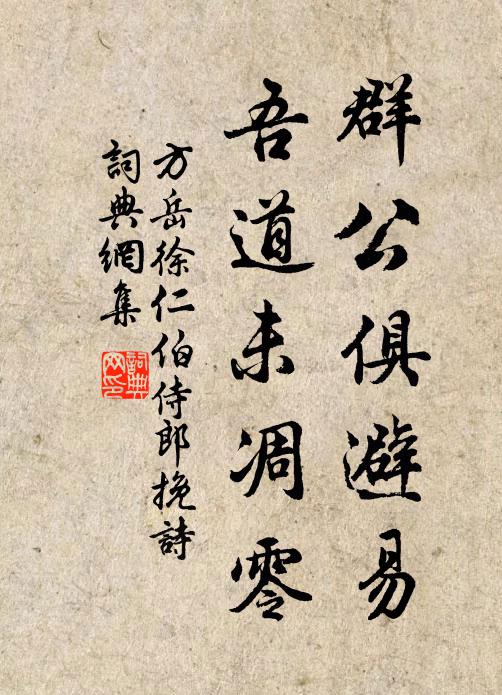 群公俱避易
吾道未凋零
方岳徐仁伯侍郎挽詩
詞典網集
詞典
网印